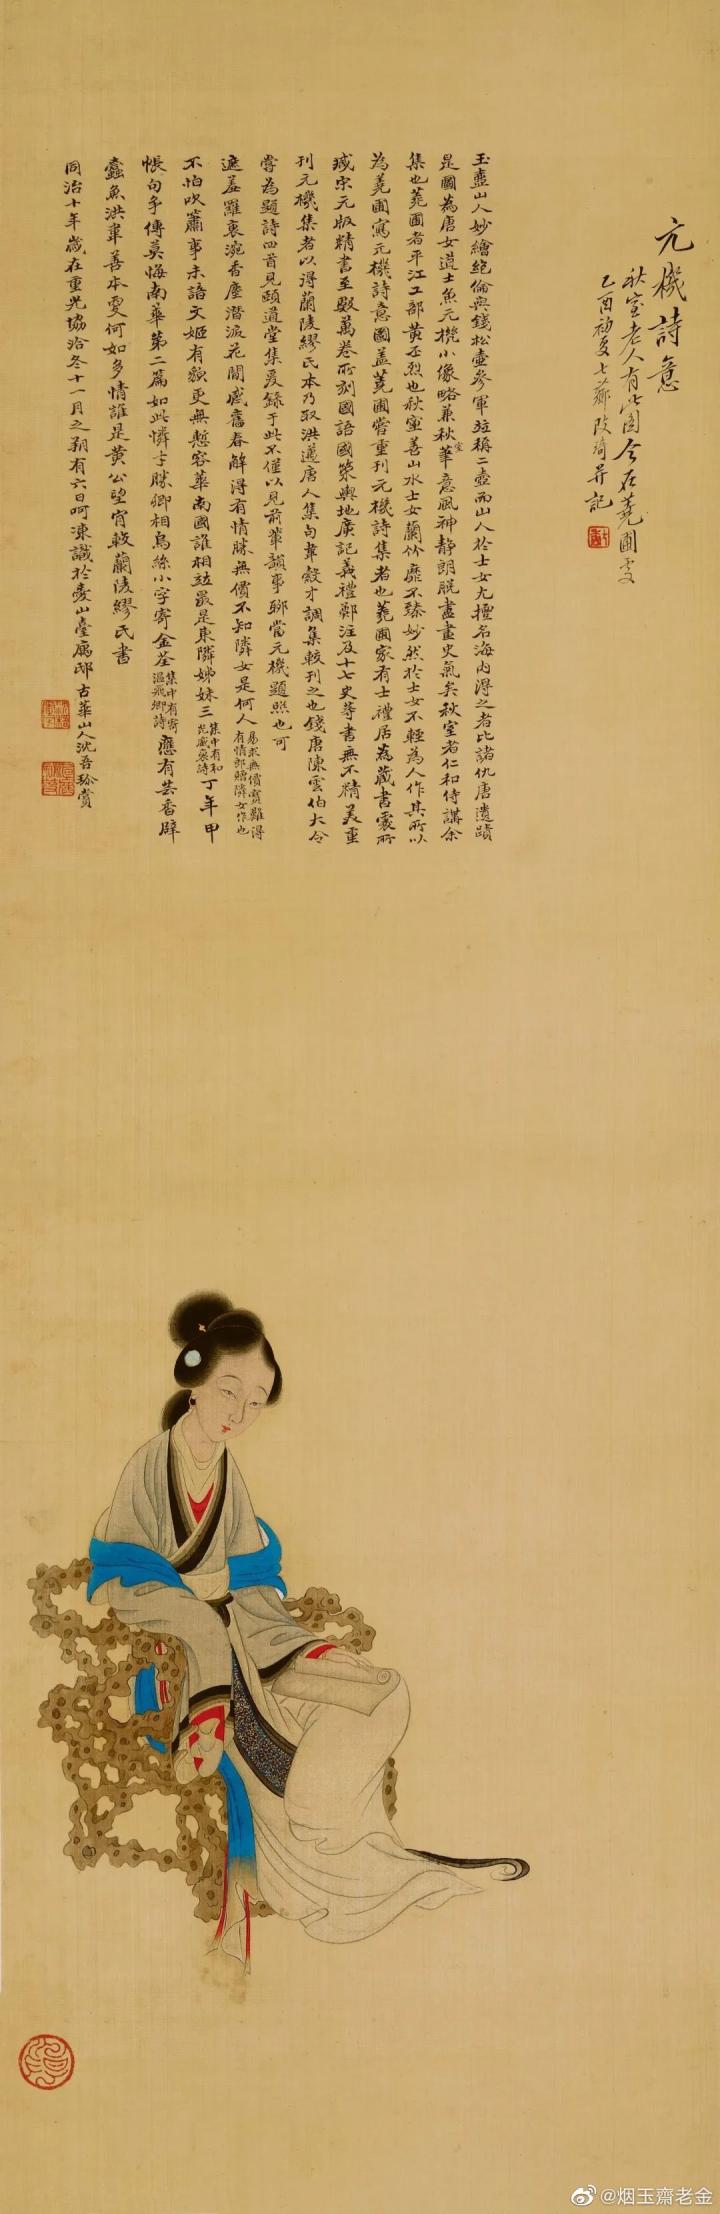 元機詩意
秋室老人有此圖今在蕘圃處
乙酉初夏七薌改琦并記
玉壺山人妙繪絕倫與錢松壺參軍竝稱二壺而山人於士女尤擅名海內得之者比諸仇唐遺蹟
是圖為唐女道士魚元機小像略兼秋室華意風神靜朗脫盡畫史氣矣秋室者仁和侍講余
集也蕘圃者平江工部黃丕烈也秋室善山水士女蘭竹靡不臻妙然於士女不輕為人作其所以
為蕘圃寫元機詩意圖蓋蕘圃嘗重刊元機詩集者也蕘圃家有士禮居為藏書處所
臧宋元版精書至數萬卷所刻國語國策輿地廣記義禮鄭注及十七史等書無不精美重
刊元機集者以得蘭陵繆氏本乃取洪邁唐人集句韋縠才調集較刊之也錢唐陳雲伯大令
嘗為題詩四首見頤道堂集爰錄于此不僅以見前輩韻事聊當元機題照也可
遮羞羅裹涴香塵潛淚花間感舊春解得有情勝無價不知隣女是何人易求無價寶難得有情郎贈隣女作也
不怕吹簫事未諧文姬有貌更無慙容華南國誰相竝最是東隣姊妹三集中有和光威裒詩丁年甲
帳句手傳莫悔南華第二篇如此憐才勝卿相烏絲小字寄金荃集中有寄溫飛卿詩應有芸香辟
蠹魚洪韋善本更何如多情誰是黃公望肯較蘭陵繆氏書
同治十年歲在重光協洽冬十一月之朔有六日呵凍識於臺山臺廨邸古華山人沈吾賞
@烟玉齋老金